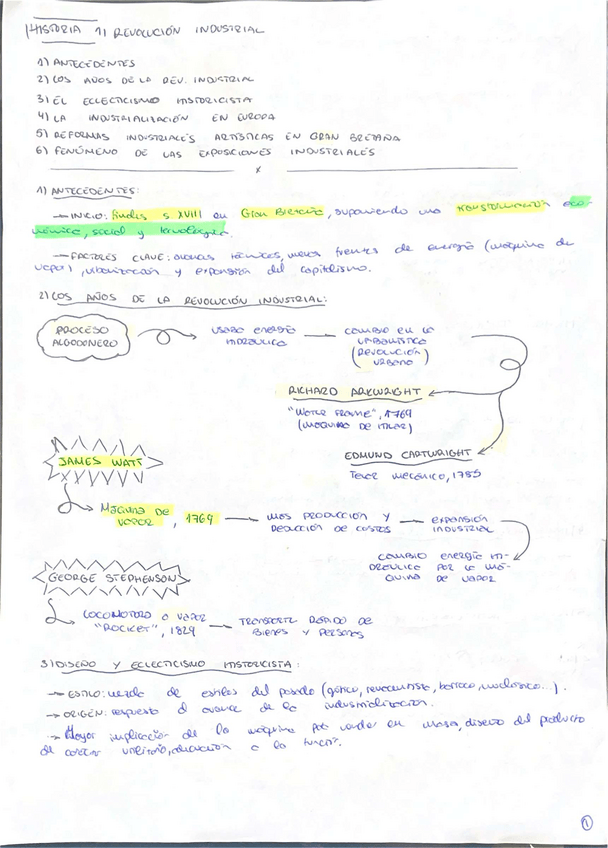 HISTORIA 1) REVOLUCIÓN INDUSTRIAL
1) ANTECEDENTES
2) LOS AÑOS DE LA REV. INDUSTRIAL
3) EL ECLECTICISMO HISTORICISTA
4) LA INDUSTRIALIZACIÓN EN EUROPA
5) REFORMAS INDUSTRIALES ARTÍSTICAS EN GRAN BRETAÑA
6) FENÓMENO DE LAS EXPOSICIONES INDUSTRIALES
x
1) ANTECEDENTES:
→ INICIO: finales s. XVIII en Gran Bretaña, suponiendo una transformación eco-
nómica, social y tecnológica.
→ FACTORES CLAVE: avances técnicos, nuevas fuentes de energía (máquina de
vapor), urbanización y expansión del capitalismo.
2) LOS AÑOS DE LA REVOLUCIÓN INDUSTRIAL:
PROCESO
ALGODONERO
USABA ENERGÍA
HIDRÁULICA
CAMBIO EN LA
URBANÍSTICA
(REVOLUCIÓN
URBANA)
RICHARD ARKWRIGHT
"WATER FRAME", 1769
(MÁQUINA DE HILAR)
EDMUND CARTWRIGHT
TELAR MECÁNICO, 1785
JAMES WATT
MÁQUINA DE
VAPOR, 1769
MÁS PRODUCCIÓN Y
REDUCCIÓN DE COSTES
EXPANSIÓN
INDUSTRIAL
CAMBIO ENERGÍA HI-
DRÁULICA POR LA MÁ-
QUINA DE VAPOR
GEORGE STEPHENSON
LOCOMOTORA A VAPOR
"ROCKET", 1829
TRANSPORTE RÁPIDO DE
BIENES Y PERSONAS
3) DISEÑO Y ECLECTICISMO HISTORICISTA:
→ ESTILO: mezcla de estilos del pasado (gótico, renacentista, barroco, neoclásico...).
→ ORIGEN: respuesta al avance de la industrialización.
→ Mayor implicación de la máquina para vender en masa, diseño del producto
de carácter utilitario, educación a la
1